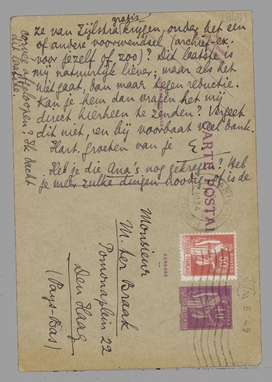 gratis
ze van Zijlstra krijgen, onder het een
of andere voorwendsel (archief-ex.
voor jezelf of zoo)? Dit laatste is
mij natuurlijk liever; maar als het
niet gaat, dan maar tegen reductie.
Kan je hem dan vragen het mij
direct hierheen te zenden? Vergeet
dit niet, en bij voorbaat veel dank.
Hart. groeten van je E.
Heb je die Ana's nog gekregen? Heb
je meer zulke dingen noodig, of is de
voorraad
Ik dacht
dit laatste
CARTE POSTALE
ADRESSE
Monsieur
M. ter Braak
Pomonaplein 22
Den Haag
(Pays-Bas)